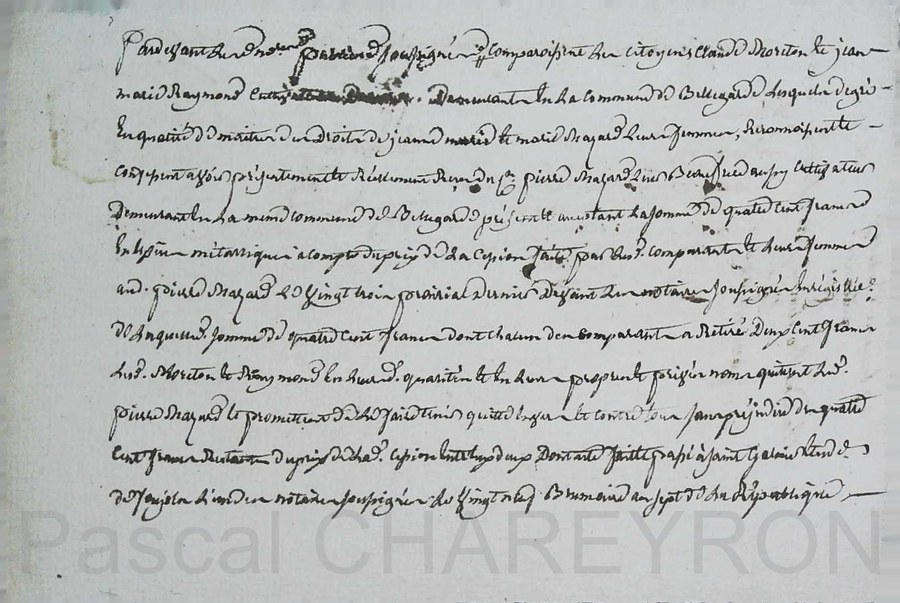 Pardevant les notaires publics soussignés comparoissent les citoyens Claude Moreton et jean
marie Raymond Cultivateurs Demeurant en la Commune de Bellegarde lesquels de gré
En qualité de maitres des Droits de jeanne et marie Mazard leurs femmes, Reconnoissent et
confessent avoir présentement et Réellement Receu du Cn pierre Mazard leur Beaufrère aussy Cultivateur
Demeurant en la meme commune de Bellegarde présent et acceptant la somme de quatre cent francs
En espèces métallique a compte du prix de la Cession faite par lesd. comparants et leurs femmes
aud. pierre Mazard le Vingt trois prairial dernier Devant les notaires soussignés Enregistrée
de laquelle somme de quatre cent francs dont chacun des comparants a Retiré Deux Cent francs
lesd. Moreton et Raymond En leursd. qualités et En leurs propres et privés noms quittent led.
pierre Mazard et promettent de le faire tenir quitte Envers et contre tous sans préjudice des quatre
Cent francs Restants du prix de lad. Cession Entre eux deux Dont acte fait et passé à saint Galmier Etude
de l'un des notaires soussignés le Vingt neuf Brumaire an sept de la République
Pascal CHAREYRON